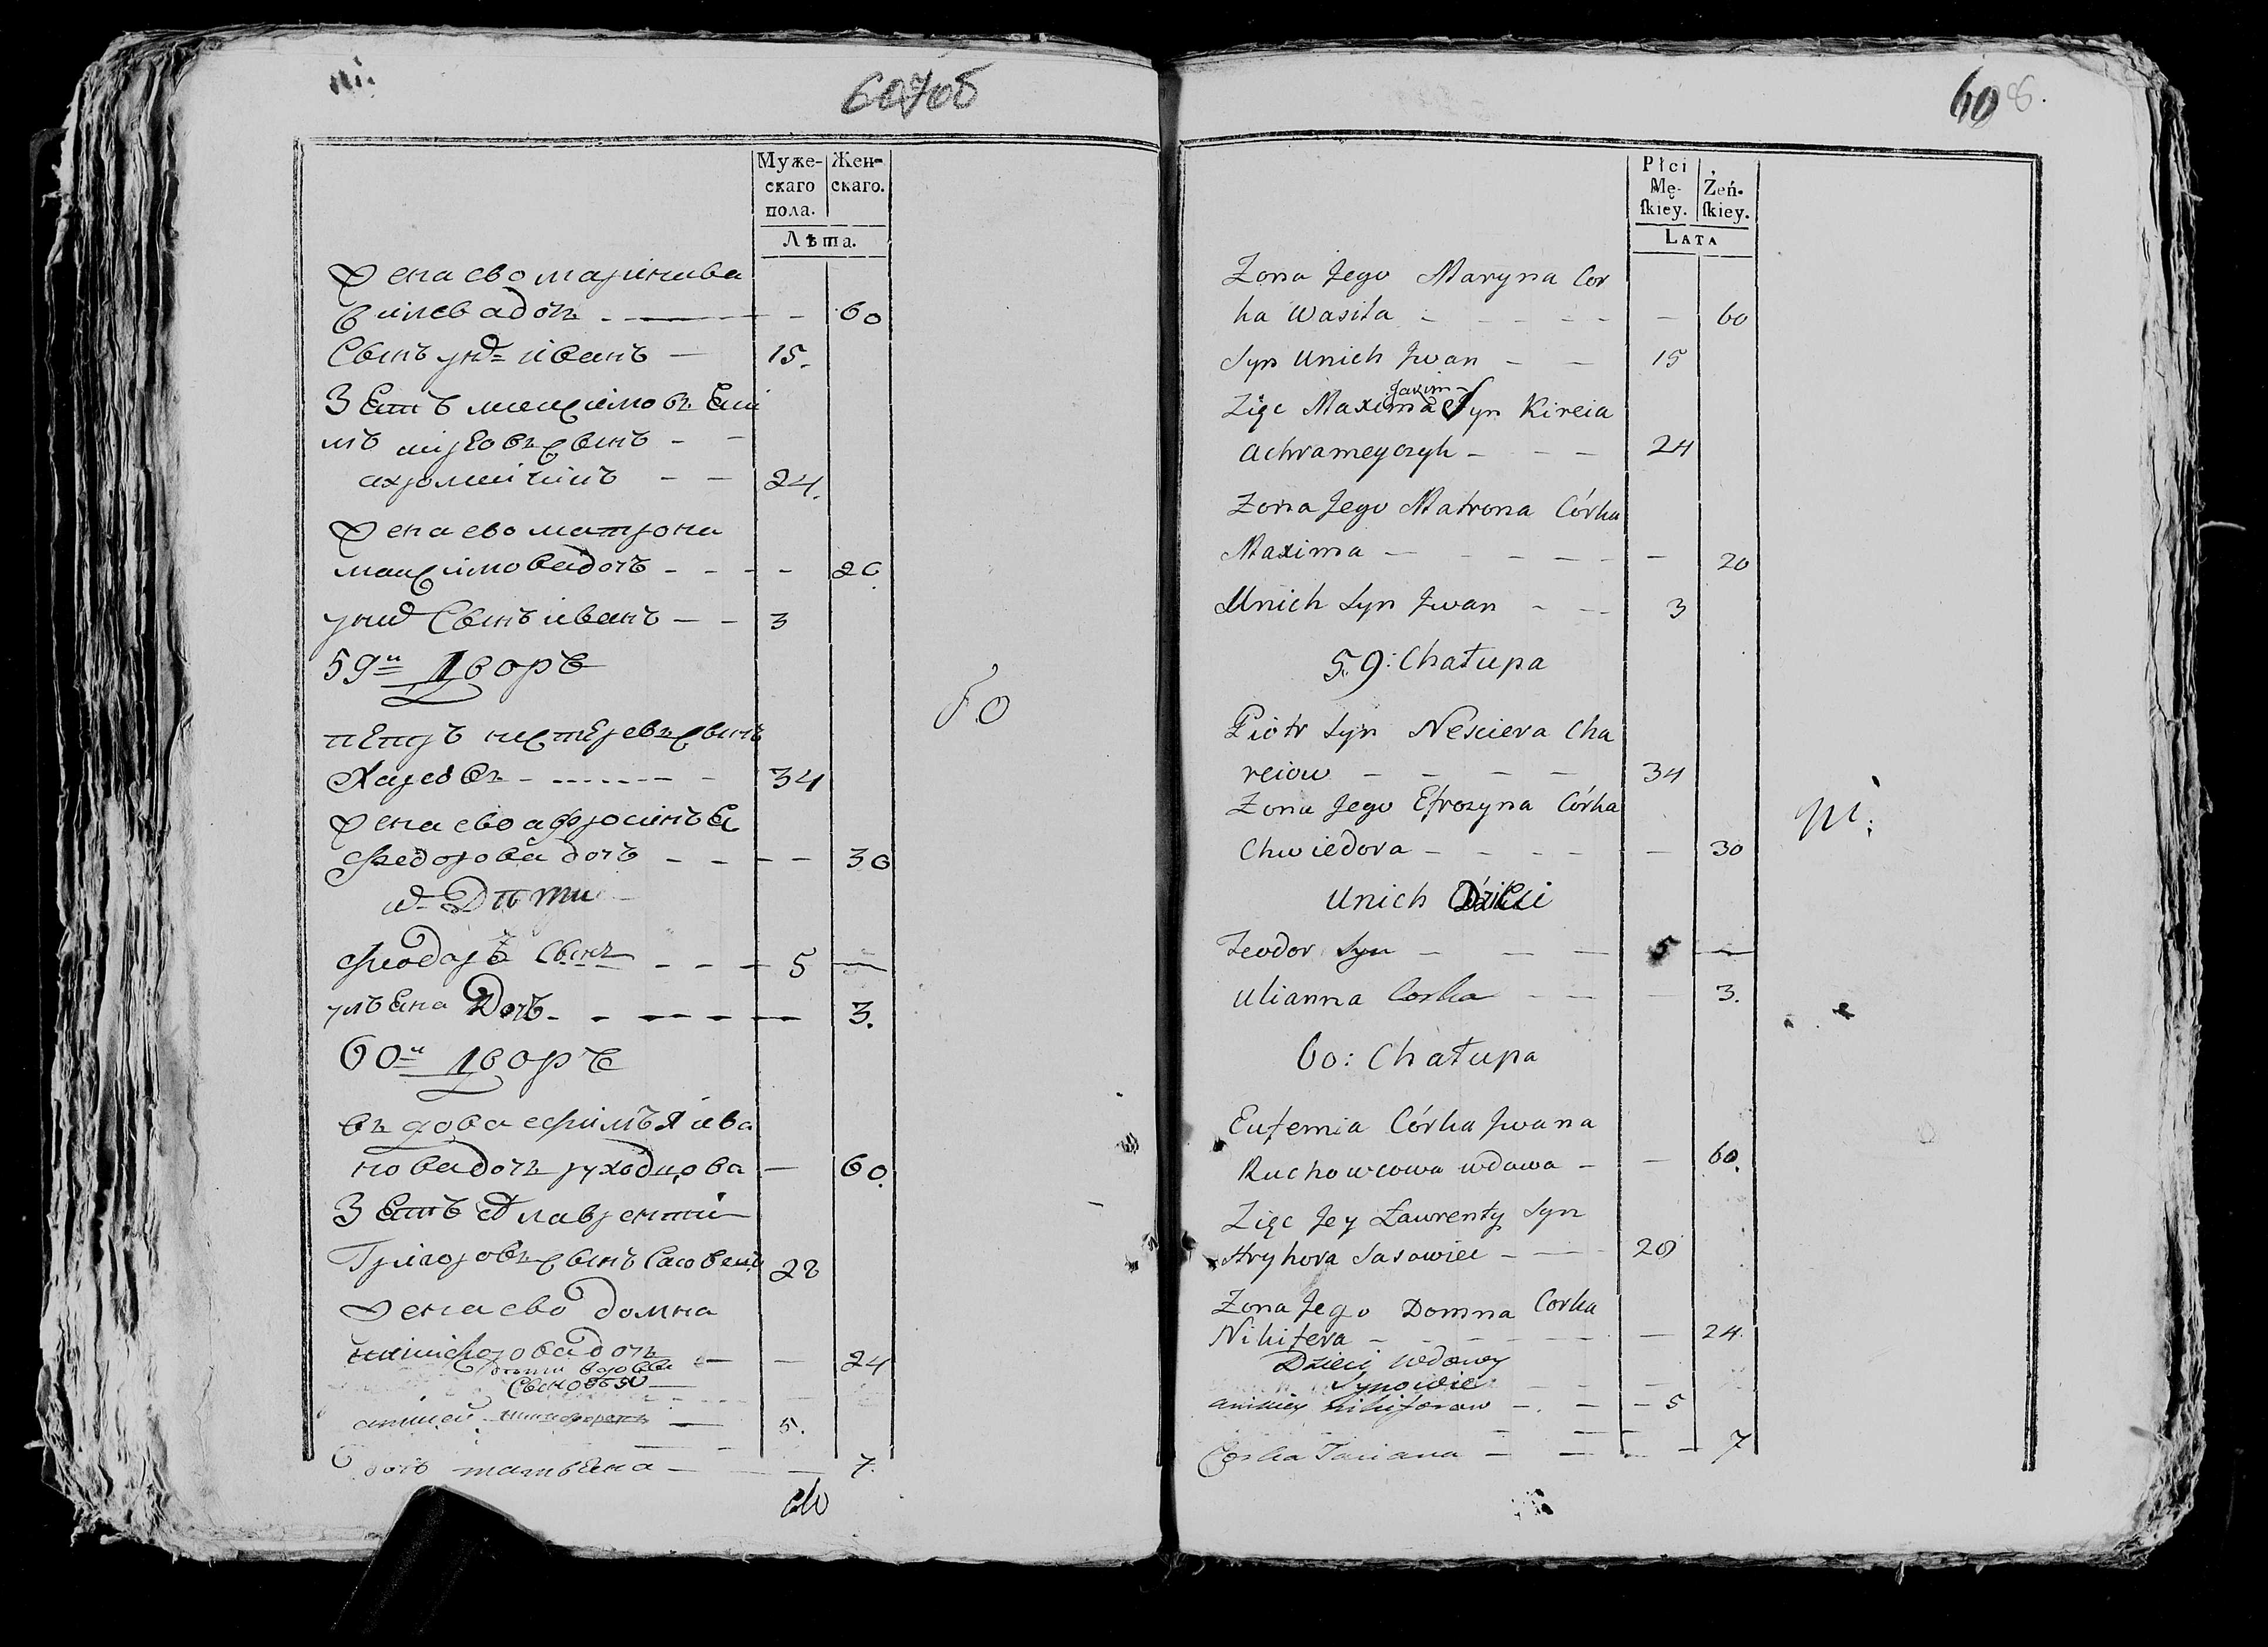 607об
Муже-
скаго
пола.
Жен-
скаго.
Лѣта.
Жена ево марина ва
силева дочь - 60
Сынъ у нихъ иванъ - 15.
ахромейчикъ - - 24.
Жена ево матрона
максимова дочь - - - - 20
у них Сынъ иванъ - - 3
59й Дворъ
петръ нестеревъ сынъ
Харевъ - 34
Жена ево афросинья
федорова дочь - - - - 30
Дѣти
феодаръ Сынъ - - - 5 -
ульяна Дочь - - - - 3.
60й Дворъ
вдова ефимья ива
нова дочь руховцова - 60.
Зять лаврентий
Григоровъ сынъ Сасовецъ 28
Жена ево домна
никифорова дочь - - 24
Сыновья
5.
дочь татьяна - - 7.
60
608.
Płci
Mę-
skiey.
Żeń-
skiey.
LATA
Zona Jego Maryna Cor
ka Wasila - - - - - 60
Syn Unich Jwan - - 15
Jaxim
Zięc Maxima Syn Kireia
Achrameyczyk - - - 24
Zona Jego Matrona Córka
Maxima - - - - - - 20
Unich Syn Jwan - - 3
59: Chałupa
Piotr Syn Nesciera Cha
reiow - - - - 34
Zona Jego Efrozyna Córka
Chwiedora - - - - - 30
Unich Dzieci
Teodor Syn - - - 5 -
Ulianna Corka - - - 3.
60: Chałupa
Eufemia Córka Jwana
Ruchowcowa wdowa - - 60.
Zięc Jey Ławrenty Syn
Hryhora Sasowiec - - 28
Zona Jego Domna Corka
Nikifera - - - - - - 24.
Dzieci wdowy
Synowie - - -
anikiey nikiforow - - - 5
Corka Taciana - - - - 7